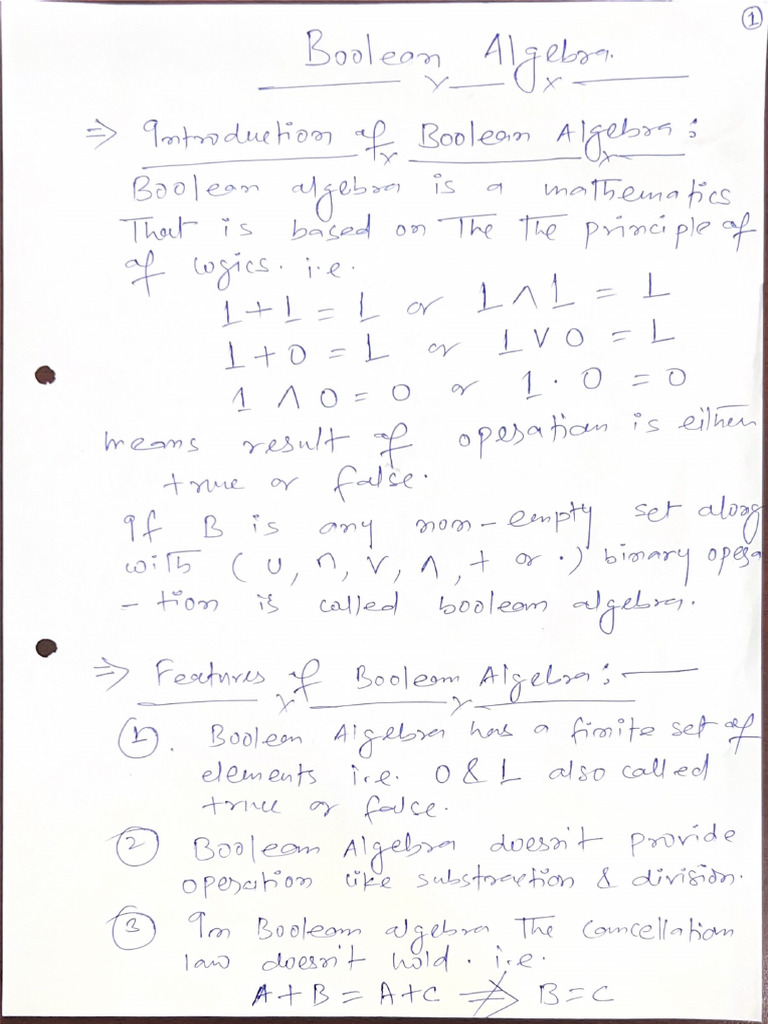 ①
Boolean Algebra.
⇒ Introduction of Boolean Algebra :
Boolean algebra is a mathematics
That is based on The The principle of
of logics. i.e.
1 + 1 = 1 or 1 ∧ 1 = 1
1 + 0 = 1 or 1 ∨ 0 = 1
1 ∧ 0 = 0 or 1 · 0 = 0
means result of operation is either
true or false.
If B is any non-empty set along
with ( ∪, ∩, ∨, ∧, + or ·) binary opera
-tion is called boolean algebra.
⇒ Features of Boolean Algebra :—
①. Boolean Algebra has a finite set of
elements i.e. 0 & 1 also called
true or false.
② Boolean Algebra doesn't provide
operation like substraction & division.
③ In Boolean algebra The cancellation
law doesn't hold. i.e.
A + B = A + C ⇏ B = C